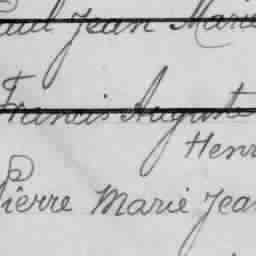 Paul Jean Marie
Francis Auguste
Henri
Pierre Marie Jean